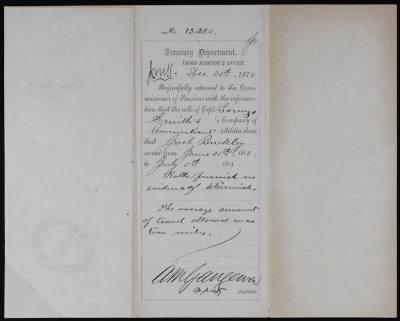 No. 13.220.
Treasury Department,
THIRD AUDITOR'S OFFICE.
Dec 20th, 1874
Respectfully returned to the Com-
missioner of Pensions with the informa-
tion that the rolls of Capt.
Smith's 's Company of
Connecticut Militia show
that Joel Buckley
served from June 20th, 1813,
to July 5th, 1813
Rolls furnish no
evidence of skirmish.
The average amount
of travel allowed was
ten miles.
A M Gangewer
Auditor.